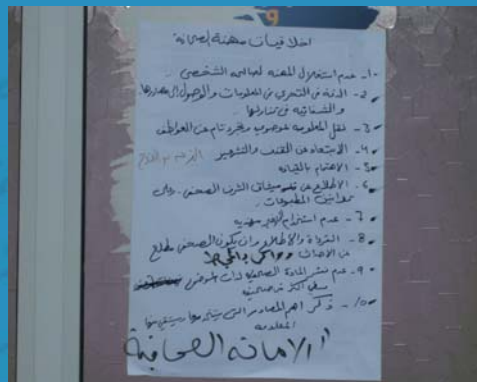 اخلاقيات مهنة الصحافة
1- عدم استغلال المهنه لصالحه الشخصي
2- الدقه في التحري عن المعلومات والوصول إلى مصدرها
والشفافيه في تناولها
3- نقل المعلومه بموضوعيه وتجرد تام عن العواطف
4- الابتعاد عن القذف والتشهير
5- الاهتمام بالقضايا
6- الاطلاع على ميثاق الشرف الصحفي وعلى
قوانين المطبوعات
7- عدم استخدام
8- القراءة والاطلاع وان يكون الصحفي مطلع
عن الاحداث
9- عدم نشر المادة الصحفيه لذات الموضوع
على اكثر من صحيفه
10- ذكر اهم المصادر التي يستقي منها
المعلومه
الامانه الصحافية